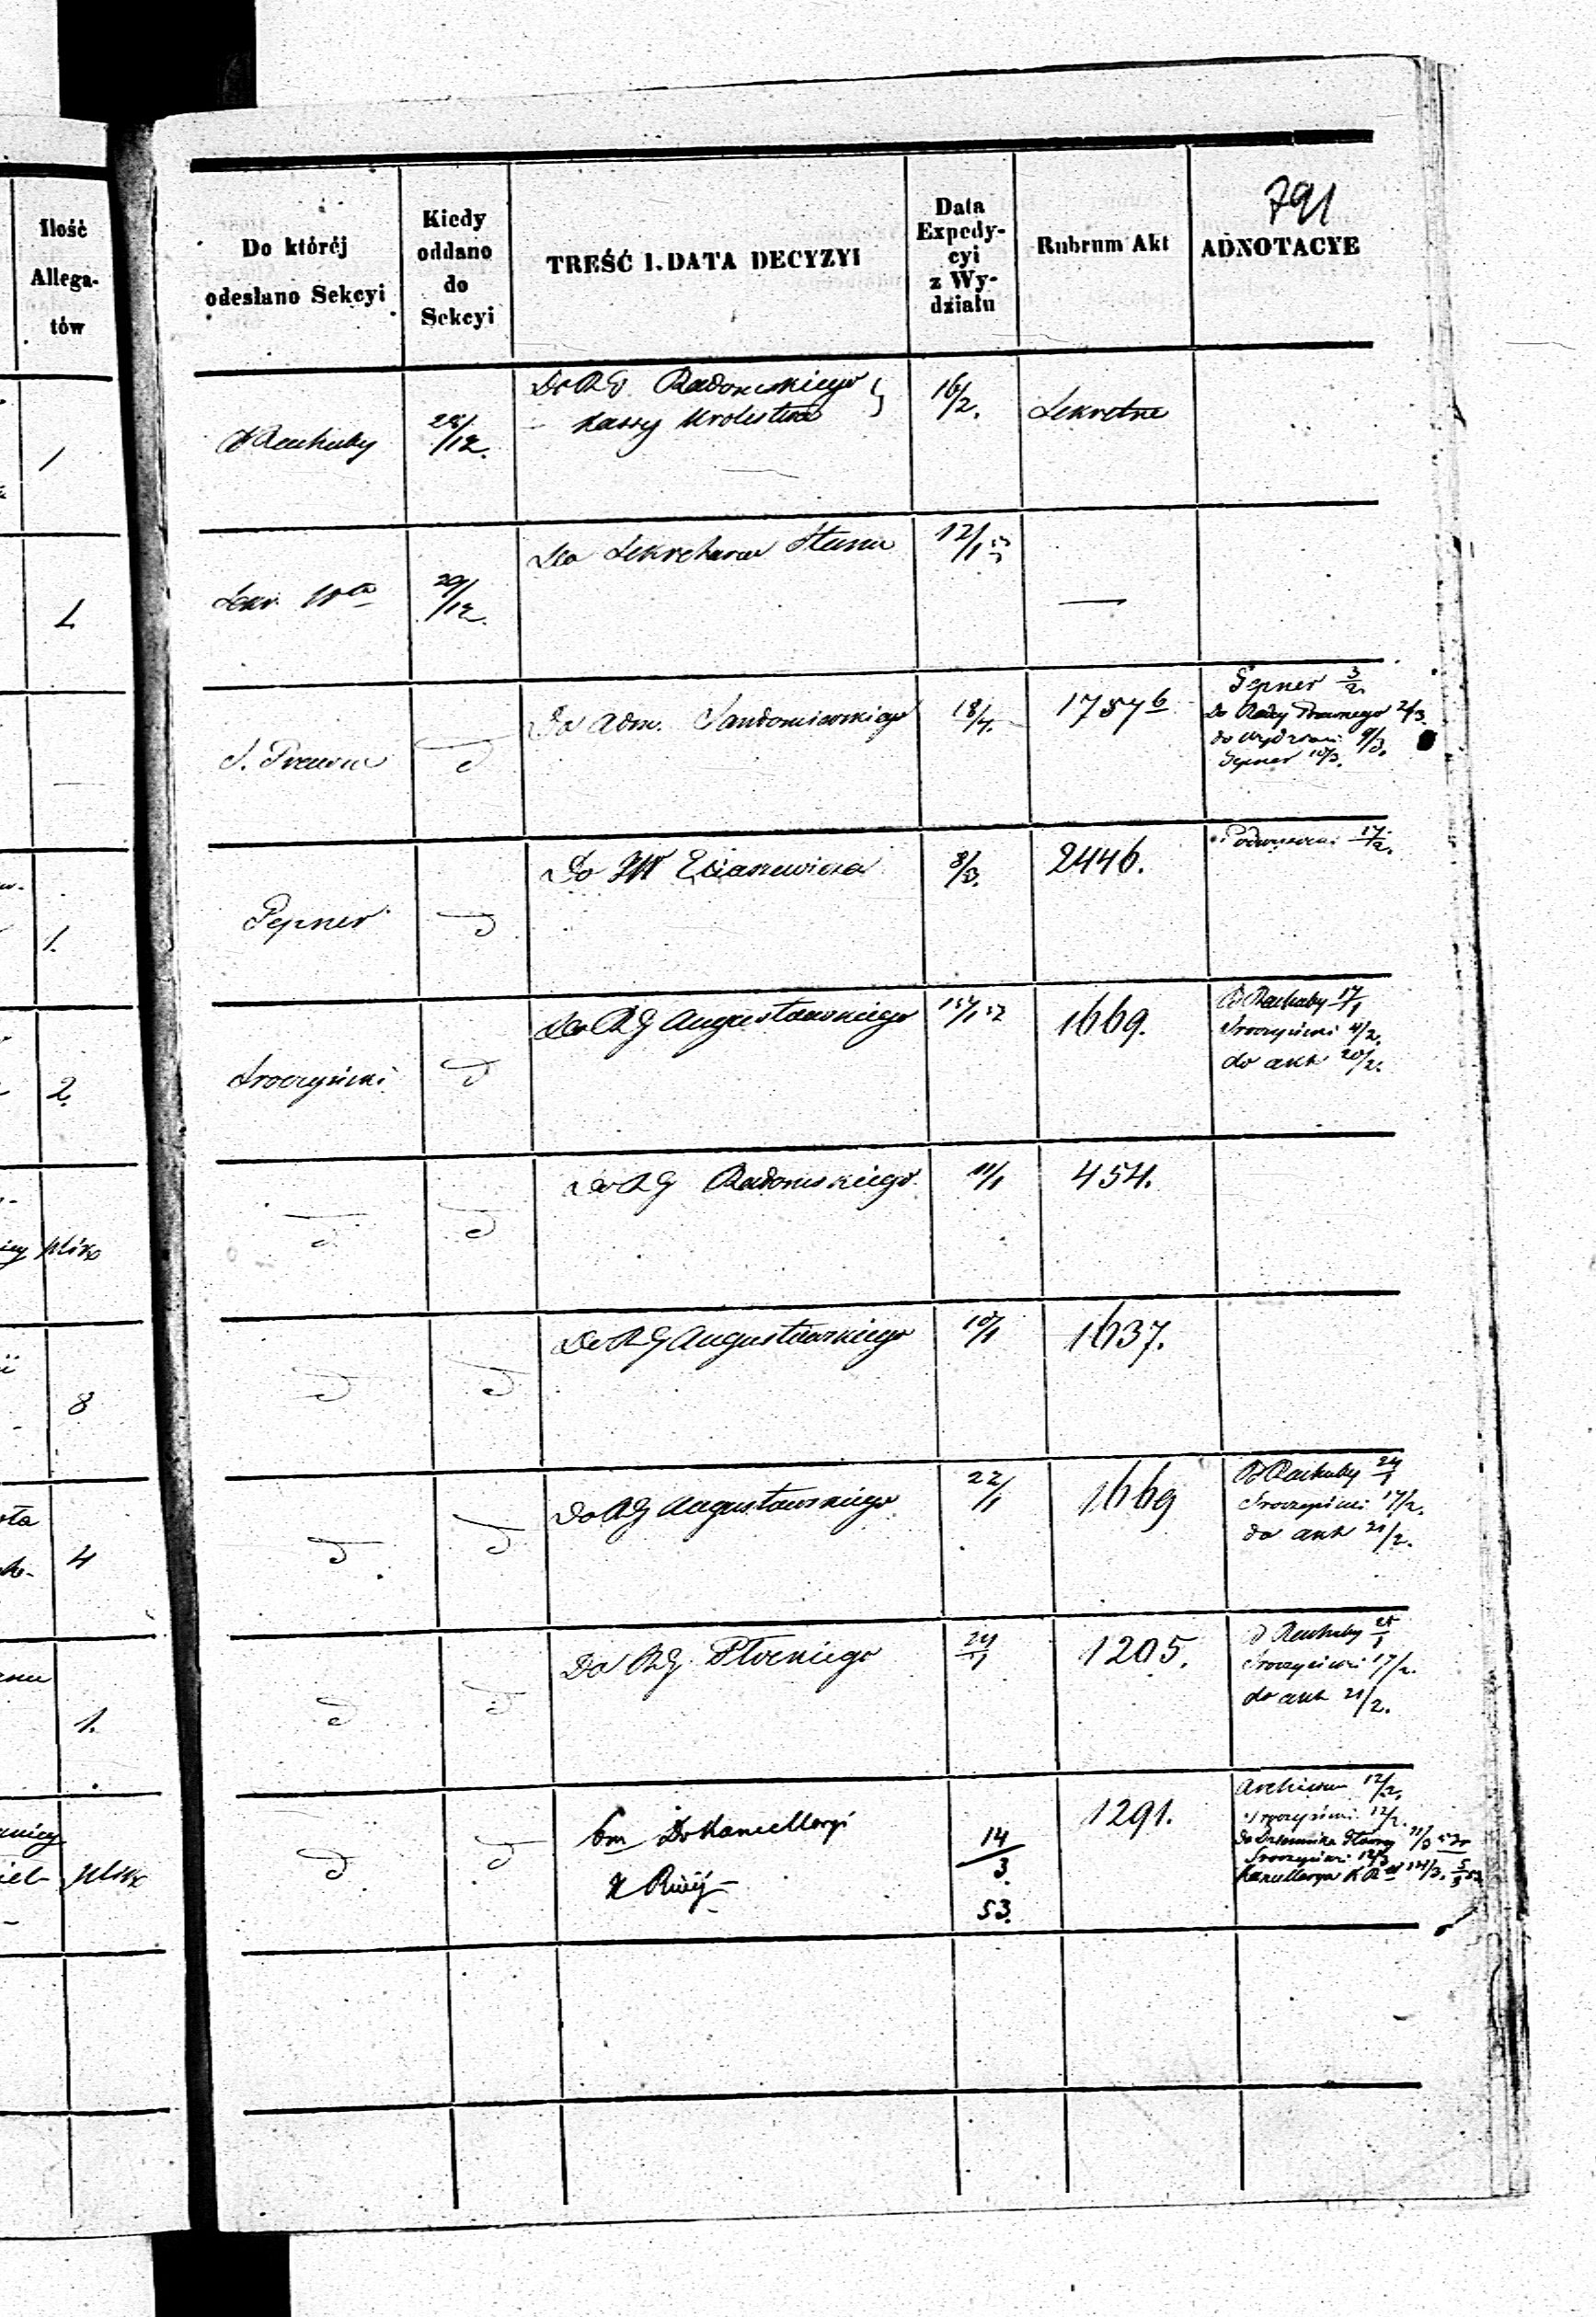 791
Ilość
Allega-
tów
Do którėj
odesłano Sekcyi
Kiedy
oddano
do
Sekcyi
TREŚĆ I DATA DECYZYI
Data
Expedy-
cyi
z Wy-
działu
Rubrum Akt
ADNOTACYE
1
Rachuby
28/12.
Do RG Radomskiego
Kassy
16/2.
Sekretne
1
Sekr.
29/12.
Do Sekretarza Stanu
12/1 53
—
S. Prawna
d
Do Adm. Sandomierskiego
18/4.
1757 b
Pepner 3/2
Do Radcy Prawnego 2/3.
do Wydziału 9/3.
Pepner 10/3.
1.
Pepner
d
Do JW
8/3.
2446.
17/2.
2.
Sroczyński
d
Do RG Augustowskiego
15/1 53
1669.
Rachuby 17/1
Sroczyński 4/2.
do akt 20/2.
plika
d
d
Do RG Radomskiego
11/1
454.
8
d
d
Do RG Augustowskiego
10/1
1637.
4
d
d
Do RG Augustowskiego
22/1
1669
Rachuby 24/1
Sroczyński 17/2.
do akt 21/2.
1.
d
d
Do RG Płockiego
24/1
1205.
Rachuby 25/1
Sroczyński 17/2.
do akt 21/2.
plika
d
d
bm Do Kancellaryi
14/3
53.
1291.
Archiwum 12/2.
Sroczyński 12/2.
Do Dziennika
Sroczyński 12/3
Kancellarya K R 14/3.